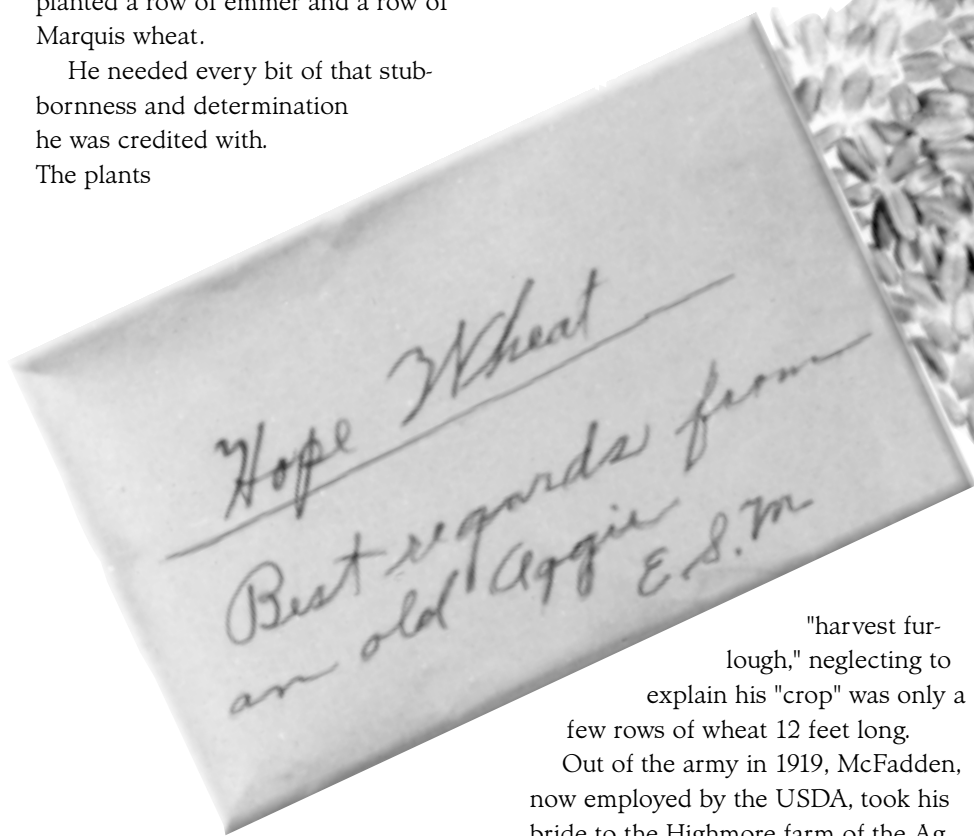 planted a row of emmer and a row of
Marquis wheat.
He needed every bit of that stub-
bornness and determination
he was credited with.
The plants
Hope Wheat
Best regards from
an old Aggie
E.S.M
"harvest fur-
lough," neglecting to
explain his "crop" was only a
few rows of wheat 12 feet long.
Out of the army in 1919, McFadden,
now employed by the USDA, took his
bride to the Highmore farm of the Ag